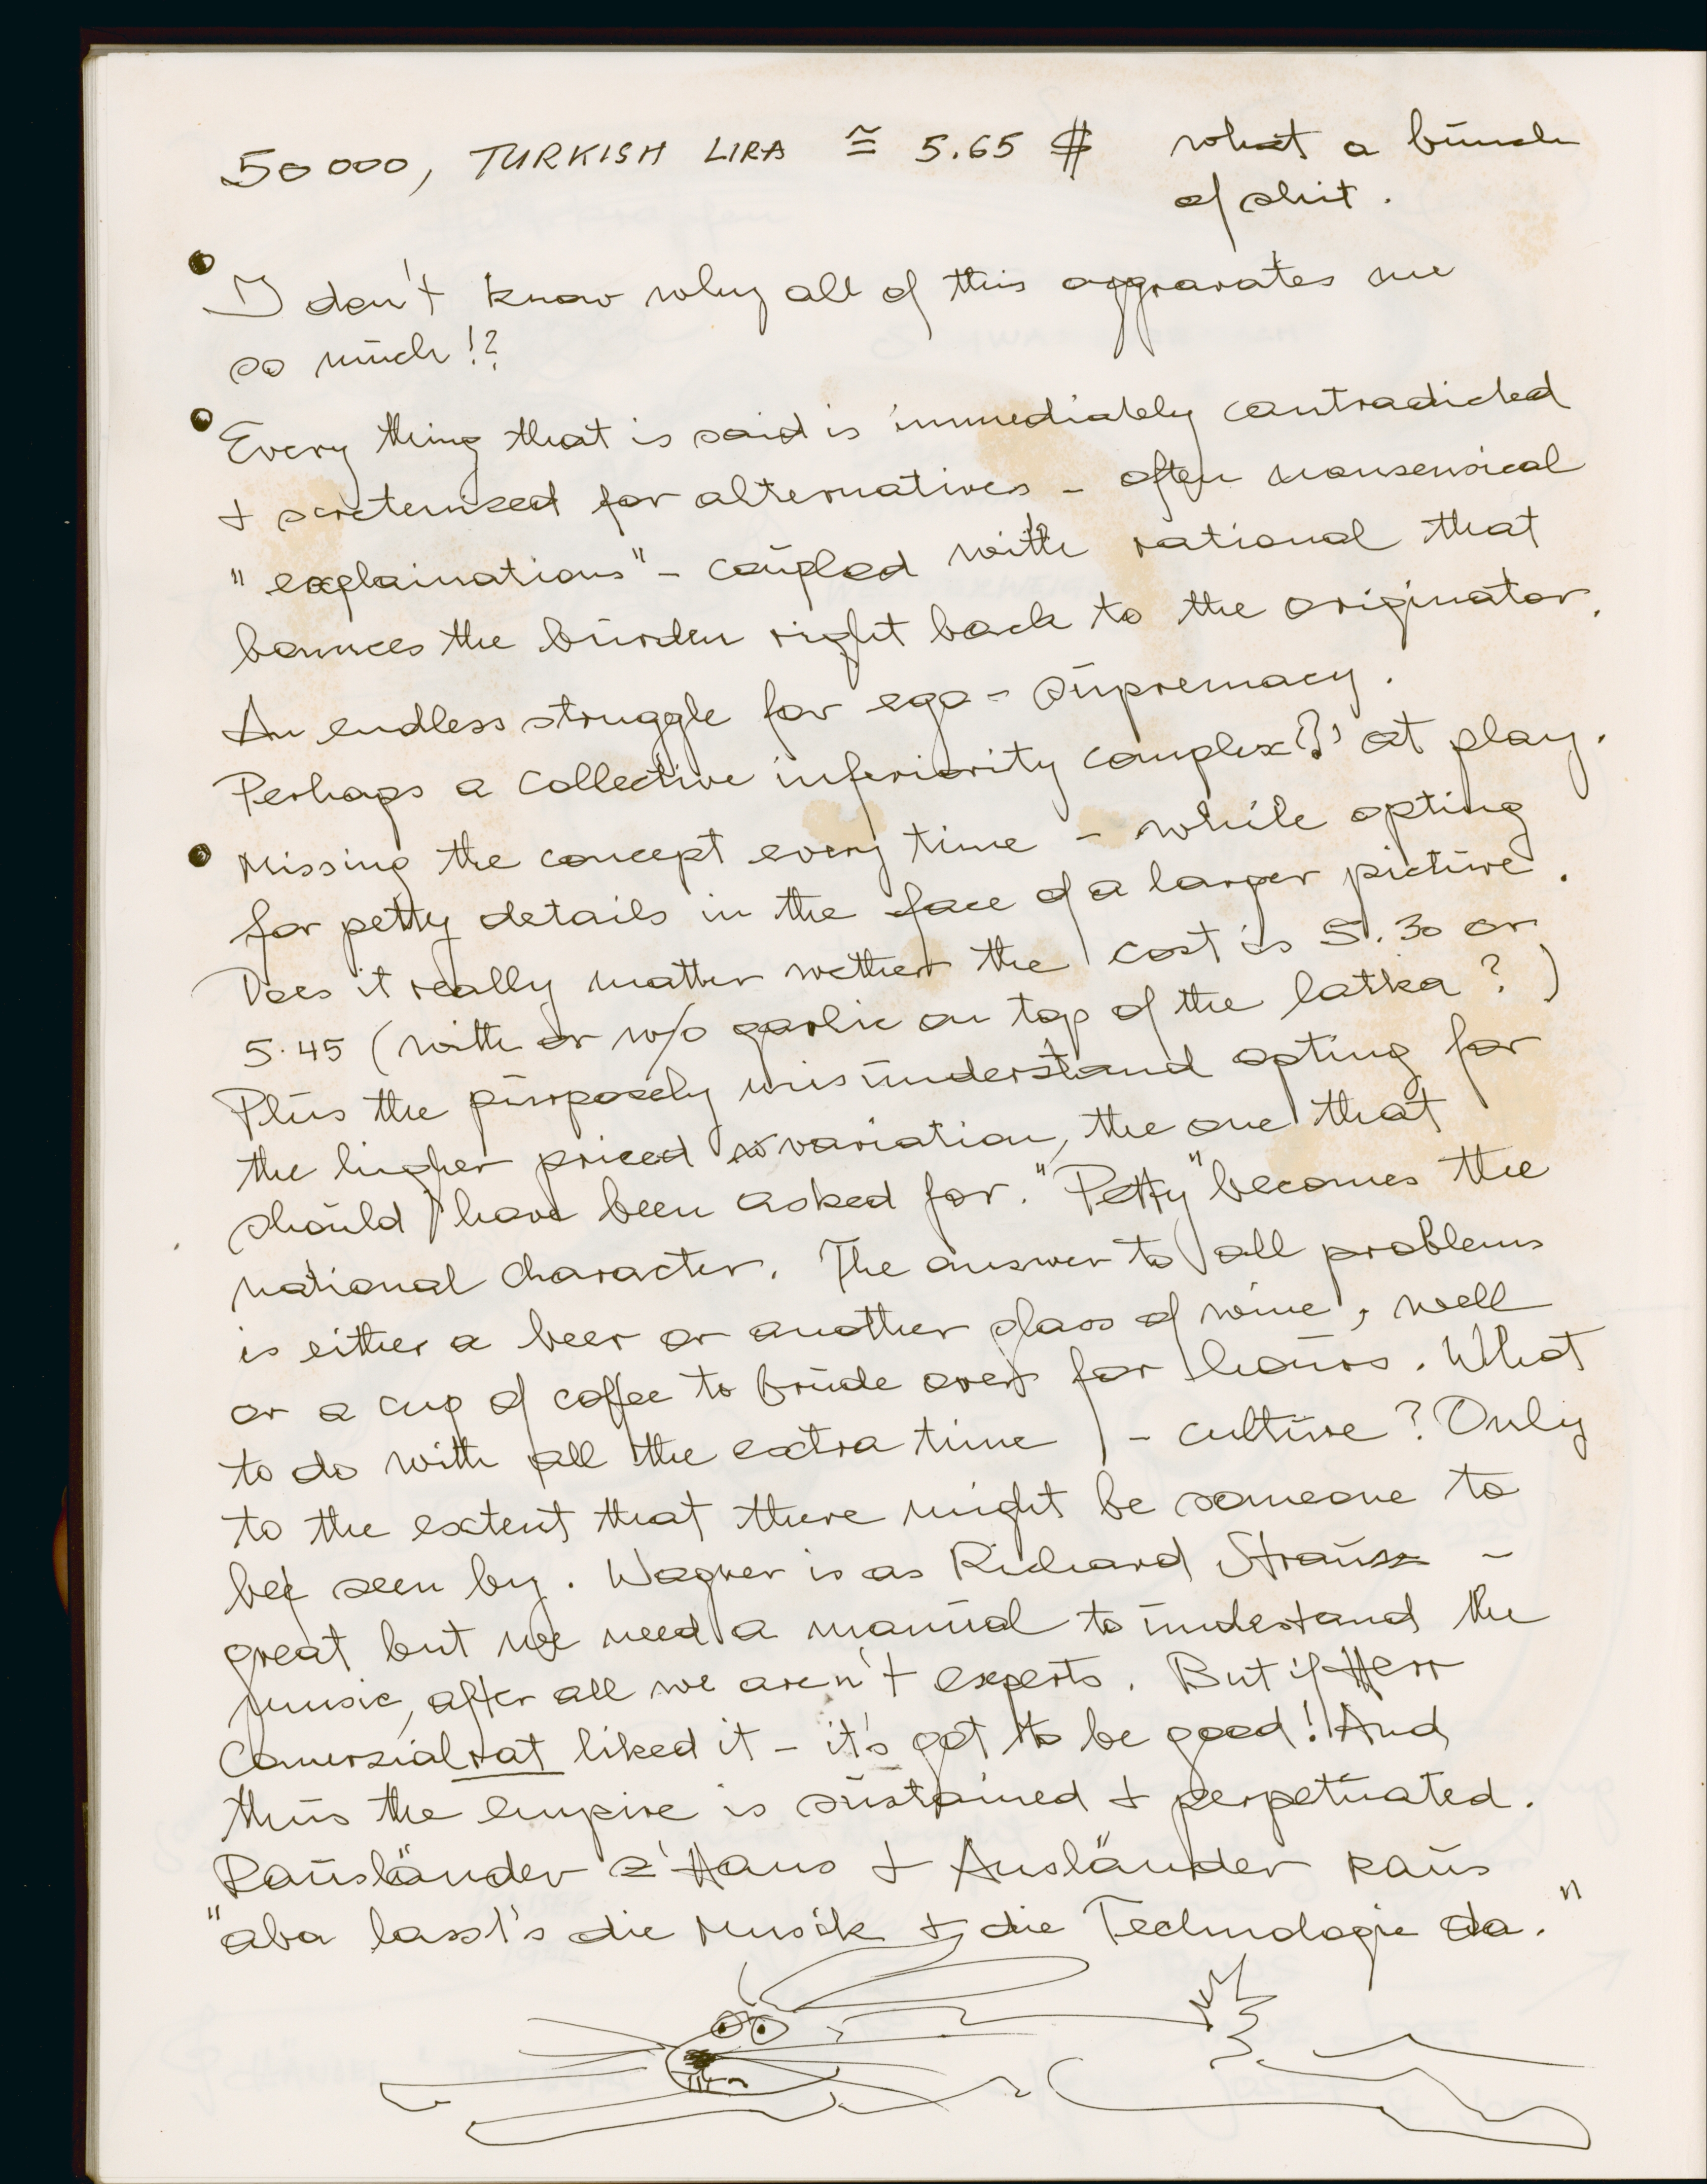 50000, TURKISH LIRA ≅ 5.65 $ what a bunch
of shit.
I don't know why all of this aggravates me
so much!?
Every thing that is said is immediately contradicted
+ scrutenized for alternatives - often nonsensical
"explainations" - coupled with rational that
bounces the burden right back to the originator.
An endless struggle for ego - supremacy.
Perhaps a collective inferiority complex(?) at play.
Missing the concept every time - while opting
for petty details in the face of a larger picture.
Does it really matter wether the cost is 5.30 or
5.45 (with or w/o garlic on top of the latka?)
Plus the purposely misunderstand opting for
the higher priced variation, the one that
should have been asked for. "Petty" becomes the
national character. The answer to all problems
is either a beer or another glass of wine, well
or a cup of coffee to brude over for hours. What
to do with all the extra time - culture? Only
to the extent that there might be someone to
be seen by. Wagner is as Richard Strauss -
great but we need a manual to understand the
music, after all we aren't experts. But if Herr
Comerzialrat liked it - it's got to be good! And
thus the empire is sustained + perpetuated.
Rausländer z'Haus + Ausländer raus
"aba lasst's die Musik + die Technologie da."